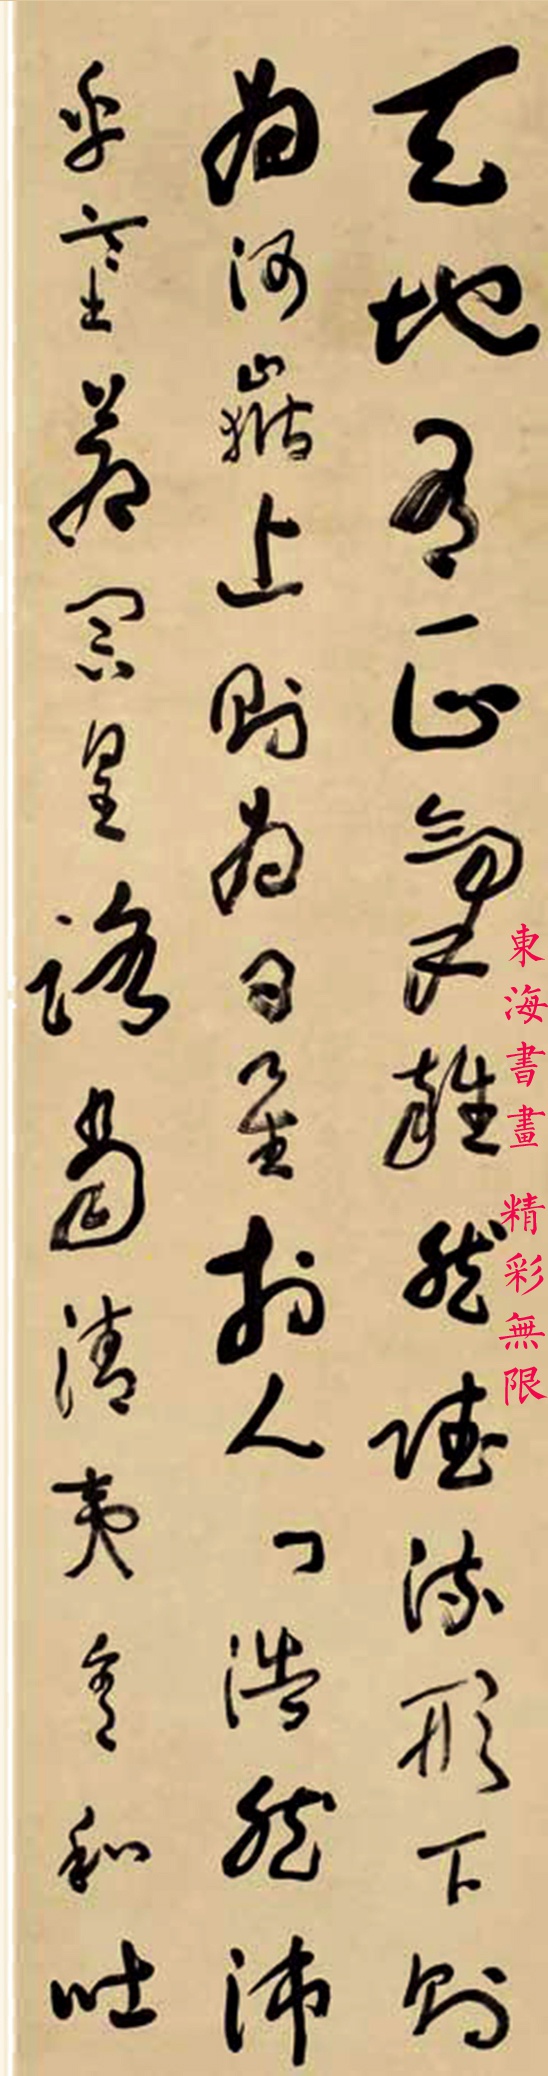 天地有正氣雜然賦流形下則
為河嶽上則為日星於人曰浩然沛
乎塞蒼冥皇路當清夷含和吐
東海書畫 精彩無限